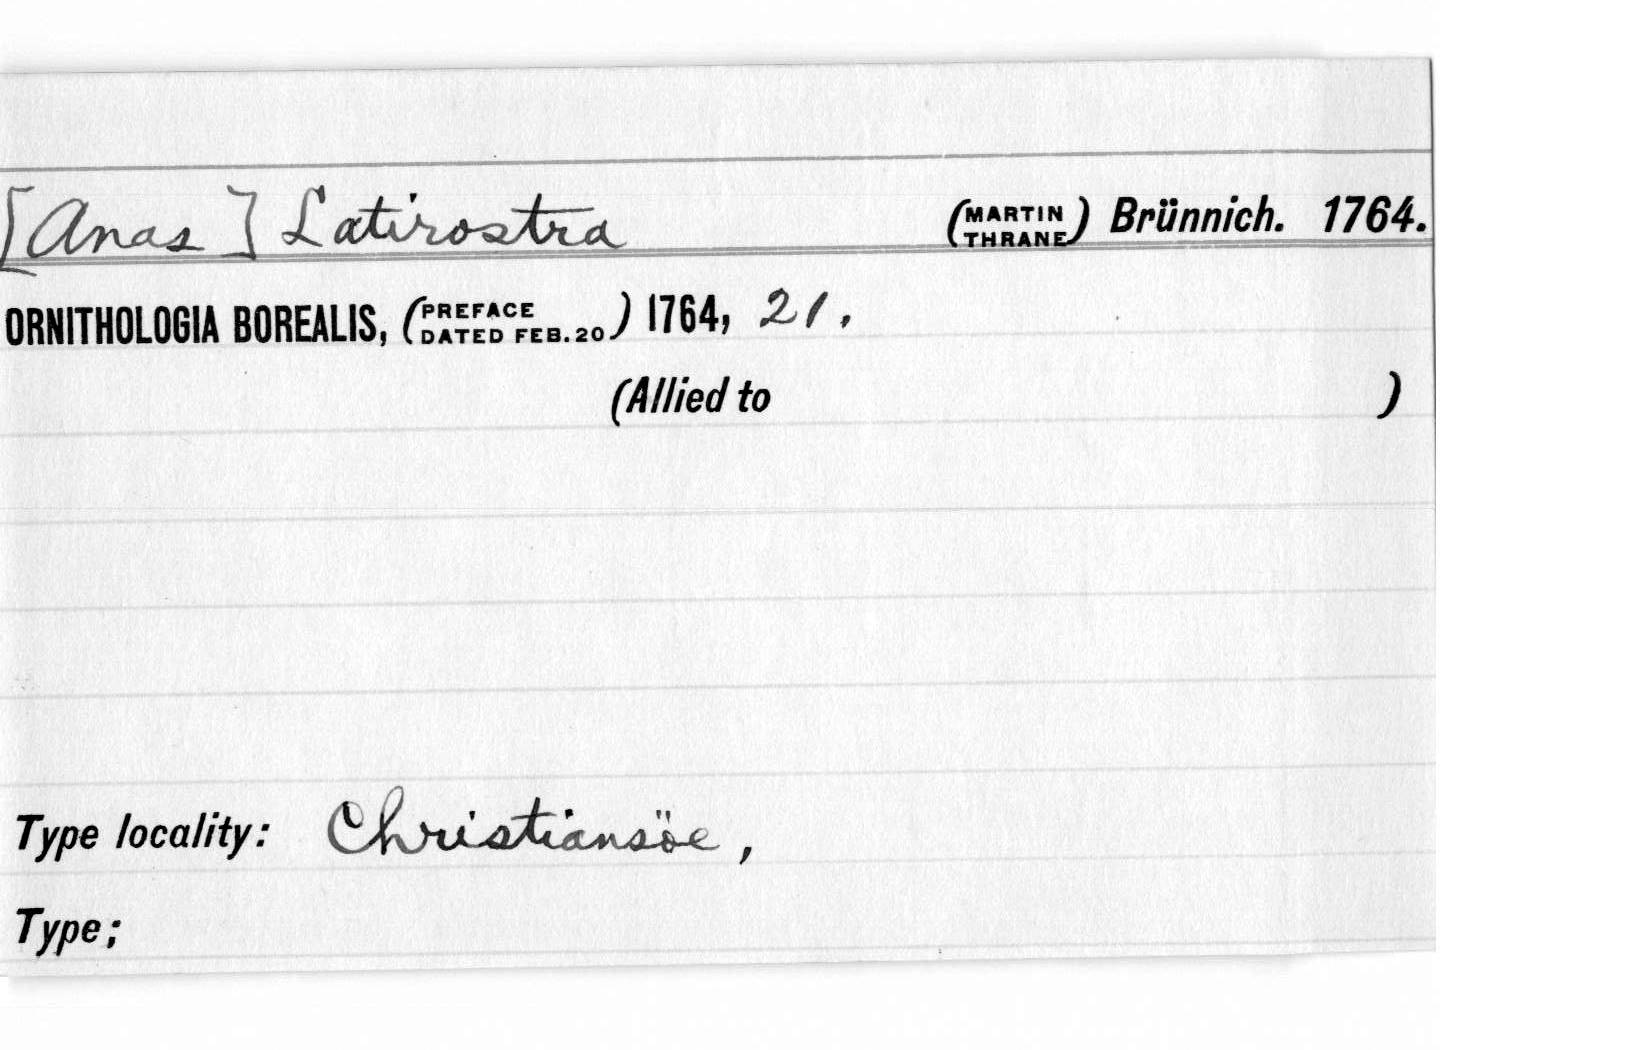 [Anas] Latirostra (MARTIN THRANE) Brünnich. 1764.
ORNITHOLOGIA BOREALIS, (PREFACE DATED FEB. 20) 1764, 21.
(Allied to )
Type locality: Christiansöe,
Type;